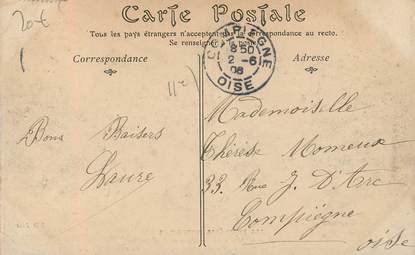 20€
Carte Postale
Tous les pays étrangers n'acceptent pas la correspondance au recto.
Se renseigner à la poste
Correspondance
Adresse
COMPIEGNE
8 50
2 - 6
08
OISE
Bons Baisers
Laure
Mademoiselle
Thérèse Momeux
33. Rue J. D'Arc
Compiègne
Oise